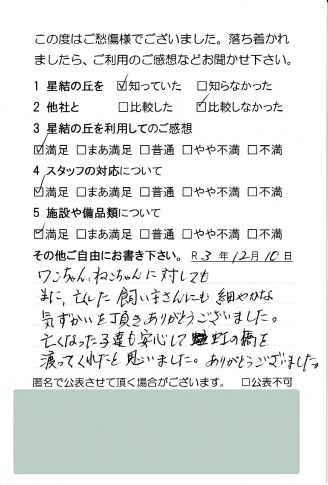 この度はご愁傷様でございました。落ち着かれ
ましたら、ご利用のご感想などお聞かせ下さい。
1 星結の丘を ☑知っていた □知らなかった
2 他社と □比較した ☑比較しなかった
3 星結の丘を利用してのご感想
☑満足 □まあ満足 □普通 □やや不満 □不満
4 スタッフの対応について
☑満足 □まあ満足 □普通 □やや不満 □不満
5 施設や備品類について
☑満足 □まあ満足 □普通 □やや不満 □不満
その他ご自由にお書き下さい。 R 3 年 12 月 10 日
ワンちゃん、ねこちゃんに対しても
また、亡くした 飼いまさんにも 細やかな
気ずかいを頂きありがとうございました。
亡くなった子達も安心して 虹の橋を
渡ってくれたと思いました。ありがとうございました
匿名で公表させて頂く場合がございます。 □公表不可